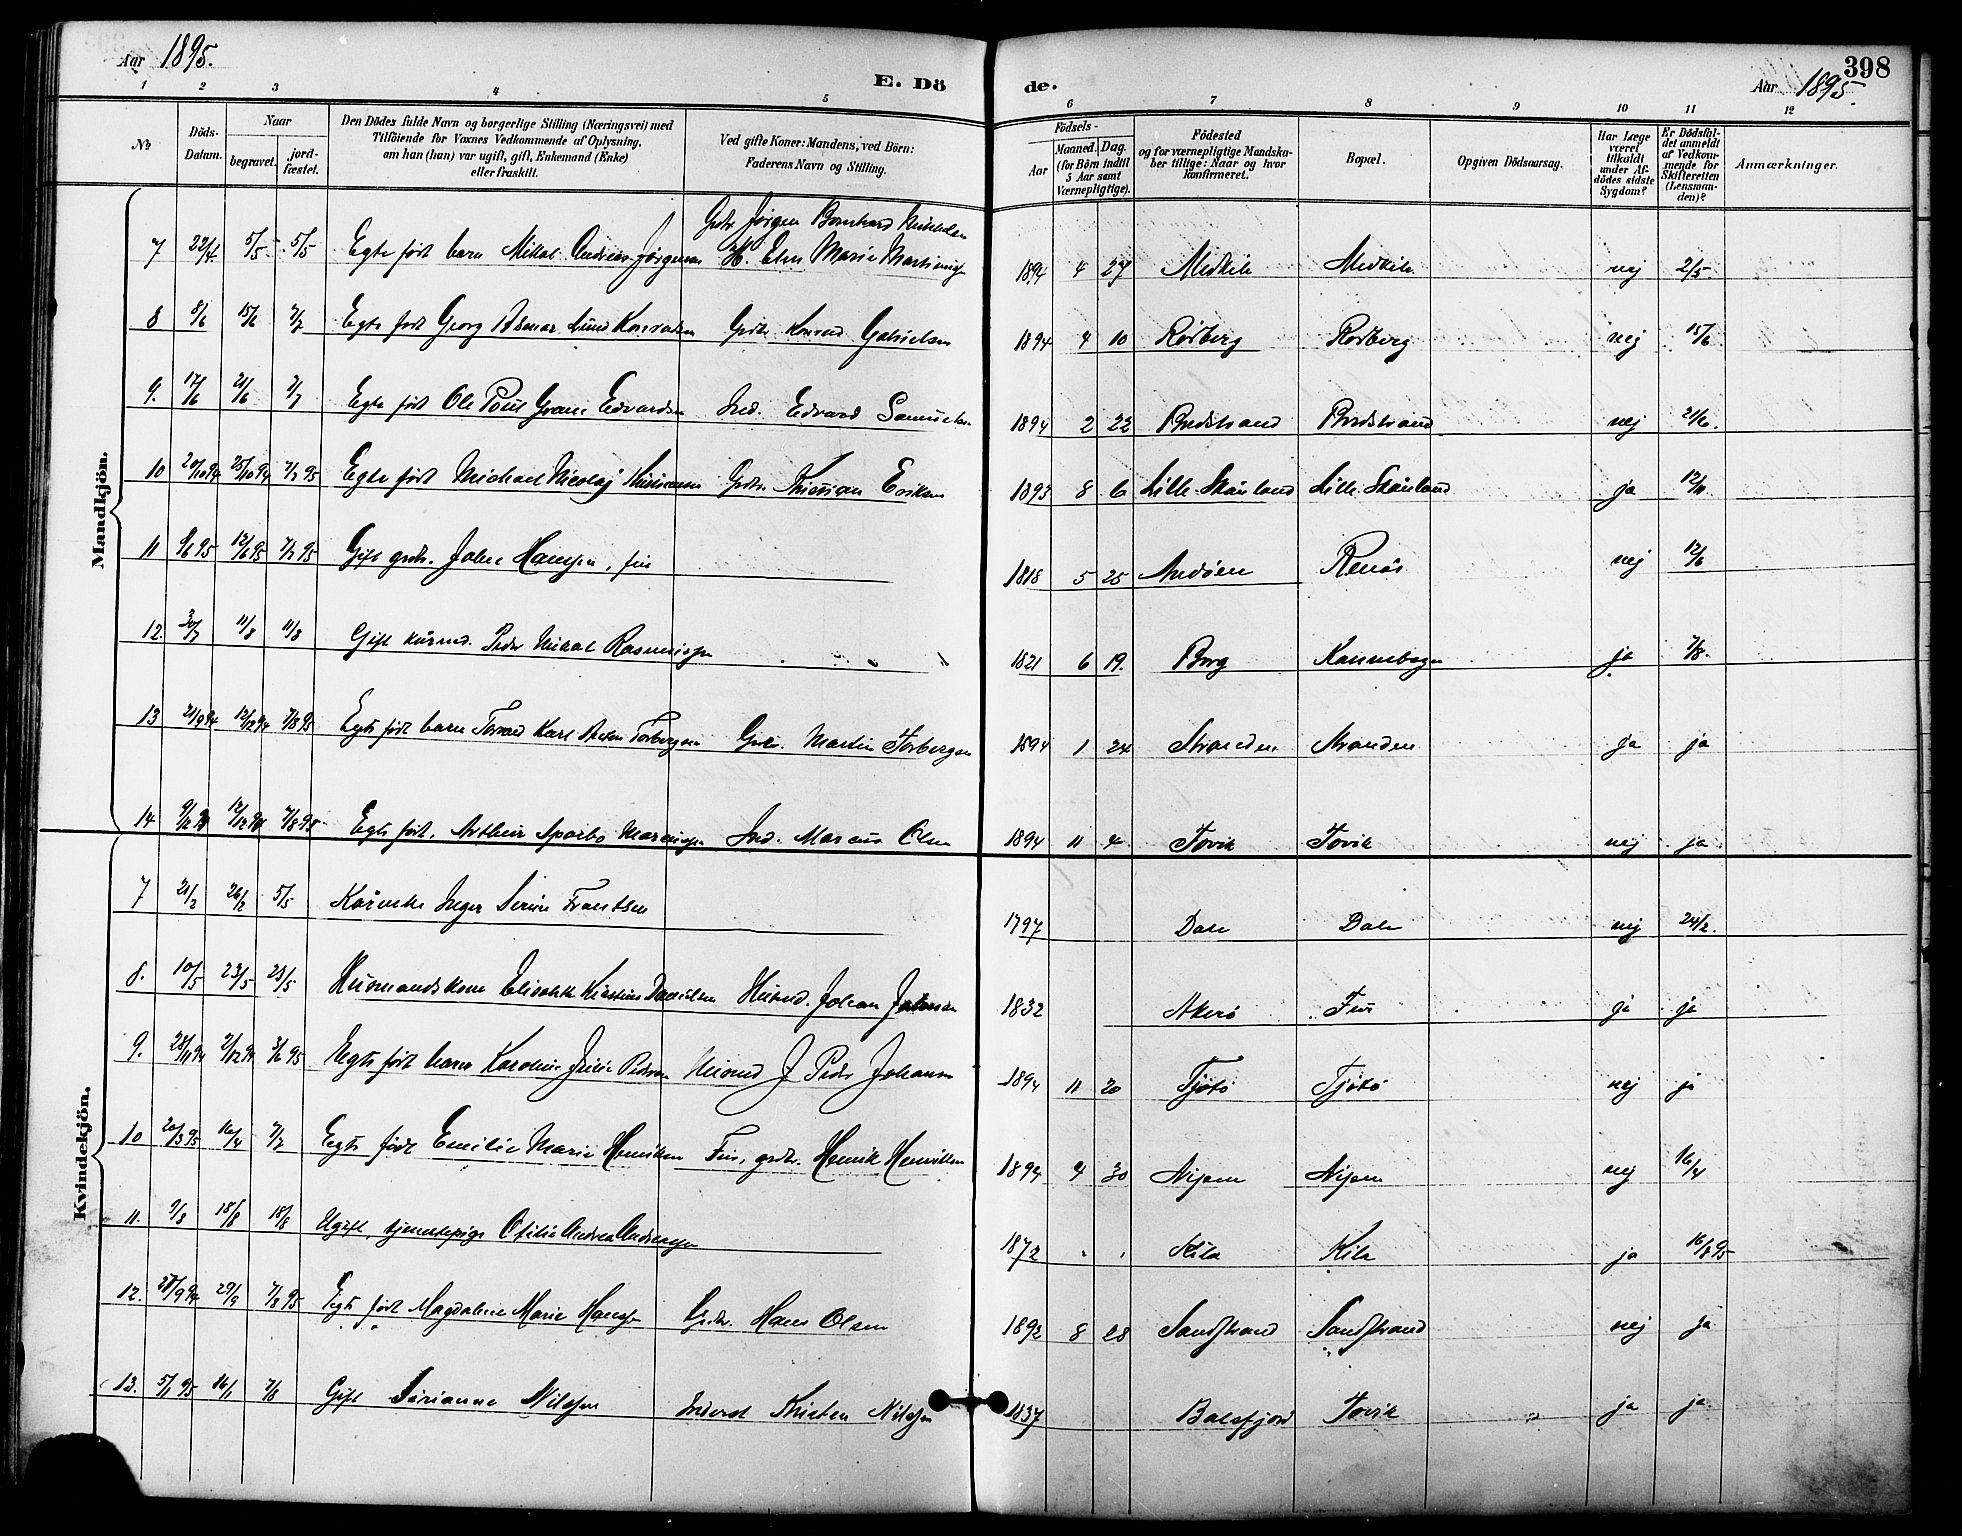 Aar 1895.
E. Dö de.
Aar 1895.
398
1 2 3 4 5 6 7 8 9 10 11 12
No
Döds-Datum.
Naar
begravet.
jord-fæstet.
Den Dödes fulde Navn og borgerlige Stilling (Næringsvei) med
Tilföiende for Voxnes Vedkommende af Oplysning,
om han (hun) var ugift, gift, Enkemand (Enke)
eller fraskilt.
Ved gifte Koner: Mandens, ved Börn:
Faderens Navn og Stilling.
Födsels-
Aar
Maaned. Dag.
(for Börn indtil
5 Aar samt
Værnepligtige).
Födested
og for værnepligtige Mandska-
ber tillige: Naar og hvor
konfirmeret.
Bopæl.
Opgiven Dödsaarsag.
Har Læge
været
tilkaldt
under Af-
dödes sidste
Sygdom?
Er Dödsfal-
det anmeldt
af Vedkom-
mende for
Skifteretten
(Lensman-
den)?
Anmærkninger.
Mandkjön.
Grdbr Jørgen Bernhard
7 22/4 5/5 5/5 Egte født barn Mikal Andreas Jørgensen H. Elen Marie 1894 4 27 Medkila Medkila nej 2/5.
8 8/6 15/6 7/7 Egte født Georg Lund Konradsen Grdbr. Konrad Gabrielsen 1894 4 10 Rødberg Rødberg nej 15/6
9. 17/6 21/6 7/7 Egte født Ole Edvardsen Ind. Edvard Samuelsen 1894 2 22 Bredstrand Bredstrand nej 21/6.
10 20/10 94 25/10 94 7/7 95 Egte født Michael Nicolaj Kristiansen Grdbr. Kristian Eriksen 1893 8 6 Lille Skånland Lille Skånland ja 12/11
11 9/6 95 12/6 95 7/7 95 Gift grdbr. Johan Hansen, fin 1818 5 25 Andøen Renøs nej 12/6
12. 30/7 11/8 11/8 Gift Peder Mikal Rasmussen 1821 6 19. Borg Kannebogen ja 7/8.
13 21/9 94 12/12 94 7/8 95 Egte født barn Torvald Karl Torbergsen Grdbr. Martin Torbergsen 1894 1 24 Stranden Stranden ja ja
14 9/12 94 12/12 94 7/8 95 Egte født. Arthur Sparbo Marcussen Ind. Marcus Olsen 1894 11 4 Tovik Tovik nej ja
Kvindekjön.
7 21/2 26/2 5/5 Kårenke Inger Serine Frantsen 1797 Dale Dale nej 24/2.
8. 10/5 23/5 23/5 Husmandskone Elisabeth Kirstine Danielsen Husmd. Johan Johnsen 1832 Akerø Fur ja ja
9. 28/11 94 2/12 94 3/6 95 Uegte født barn Karoline Julie Pedersen Husmd J Peder Johansen 1894 11 20 Tjøtø Tjøtø nej ja
10 20/3 95 16/4 7/7 Egte født Emilie Marie Henriksen Fin, grdbr. Henrik Henriksen 1894 4 30 Nipen Nipen nej 16/4
11. 9/8 18/8 18/8 Ugift, tjenestepige Otilie Andrea Andreassen 1872 " " Kila Kila ja 16/8 95
12. 28/9 94 29/9 7/8 95 Egte født Magdalene Marie Hansen Grdbr. Hans Olsen 1892 8 28 Sandstrand Sandstrand nej ja
13. 5/1 95 16/1 7/8 Gift Sørianne Nilssen Inderst Kristen Nilssen 1837 Balsfjord Tovik ja ja